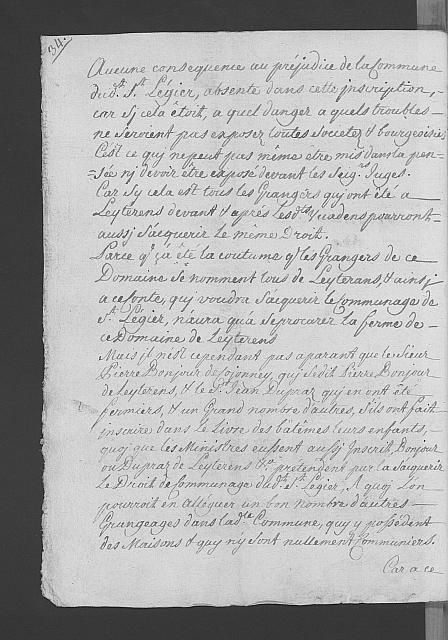 34.
Aucune consequence au préjudice de la Commune
dud.t S.t Légier, absente dans cette inscription,
car sj cela étoit, a quel danger a quels troubles
ne seroient pas exposez toutes Societez & bourgeoisies
C'est ce qui ne peut pas même être mis dans la pen=
=sée nj devoir être exposé devant les Seig.rs Juges.
Car Sy cela est tous les Grangers qui ont été a
Leyterens devant & après les d.ts Cadens pourront
aussj S'acquerir le même Droit.
Parce q.e ç'a été la coutume q.e les Grangers de ce
Domaine Se nomment tous de Leyterans, & ainsj
a ce conte, qui voudra S'acquerir le Communage de
S.t Légier, n'aura qu'a se procurer la ferme de
ce Domaine de Leyterens
Mais il n'est cependant pas aparant que le Sieur
Pierre Bonjour de Jojonney, qui Se dit Pierre Bonjour
de Leyterens, & le S.r Jean Dupraz qui en ont été
fermiers, & un Grand nombre d'autres, S'ils ont fait
inscrire dans le Livre des bâtêmes leurs enfants,
quoj que les Ministres eussent aussj Inscrit Bonjour
ou Dupraz de Leyterens &.a pretendent par la S'acquerir
le Droit de Communage dud.t S.t Légier, A quoj L'on
pourroit en alléguer un bon nombre d'autres
Grangeages dans lad.te Commune, quy y possédent
des Maisons & quy n'y Sont nullement Communiers.
Car a ce